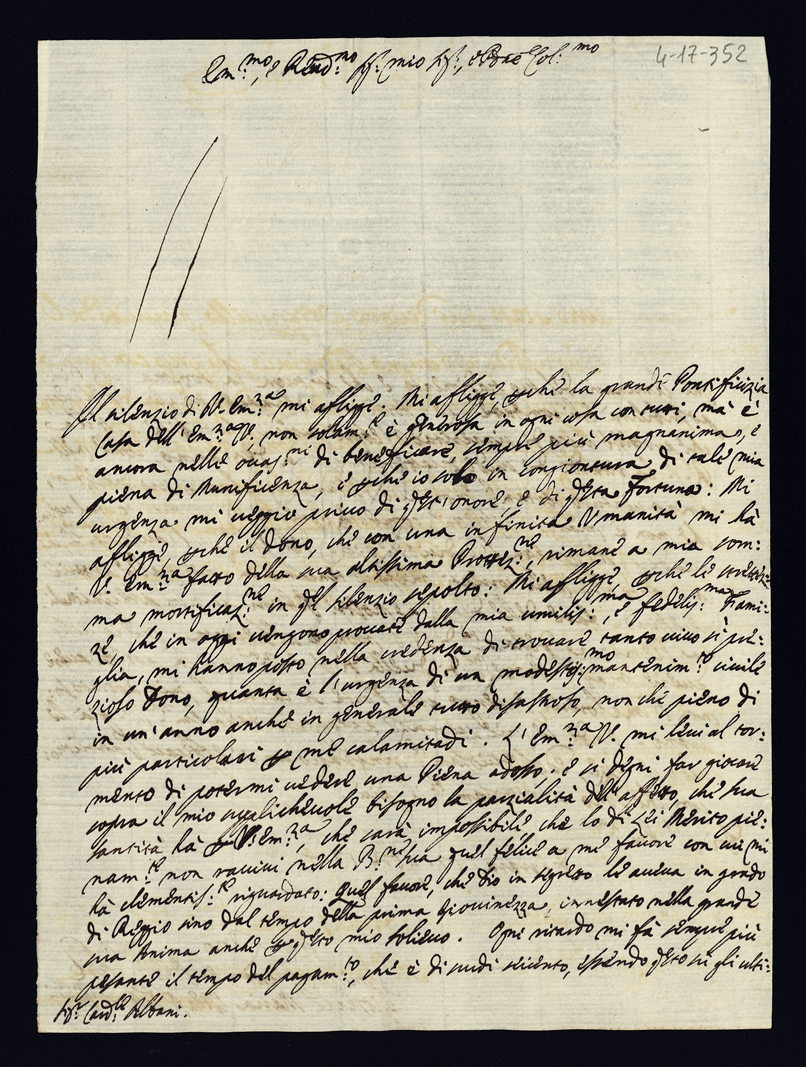 4-17-352
Em.mo, e Rev.mo Sig.r mio Sig.r, e Pne Col.mo
Il silenzio di V. Em.za mi afligge. Mi afligge, perchè la grande Pontificizia
Casa dell'Em.za V., non solam.te è generosa in ogni cosa con tutti, mà è
ancora nelle occas.ni di beneficare, sempre più magnanima, e
piena di Munificenza, e perche io solo in congiontura di tale mia
urgenza mi veggio privo di quest'onore, e di questa Fortuna: Mi
afligge, perchè il Dono, che con una infinita Umanità mi hà
V. Em.za fatto della sua altissima Protez.ne, rimane a mia som:
ma mortificaz.ne in quel silenzio sepolto: Mi afligge, perchè le strettez:
ze, che in oggi vengono provate dalla mia umilis:ma, e fedelis:ma Fami:
glia, mi hanno posto nella credenza di trovare tanto vivo sì pre:
zioso Dono, quanta è l'urgenza di un modestis:mo mantenim.to civile
in un'anno anche in generale tutto disastroso, non che pieno di
più particolari per me calamitadi. L'Em.za V. mi levi al tor:
mento di potermi vedere una Piena adosso; e si degni far giocare
sopra il mio inesplichevole bisogno la parzialità dell'affetto, che sua
Santità hà per V. Em.za, che sarà impossibile, che lo di Lei Merito pie:
nam.te non ravvivi nella B.ne sua quel felice a me favore con cui mi
hà clementis:te riguardato: Quel favore, che Dio in segreto le aveva in grado
di Reggio sino dal tempo della prima Giovinezza innestato nella grande
sua Anima anche per questo mio solievo. Ogni ritardo mi fà sempre più
pesante il tempo del pagam.to, che è di scudi seicento, essendo questo su gli ulti:
Sig.r Card.le Albani.